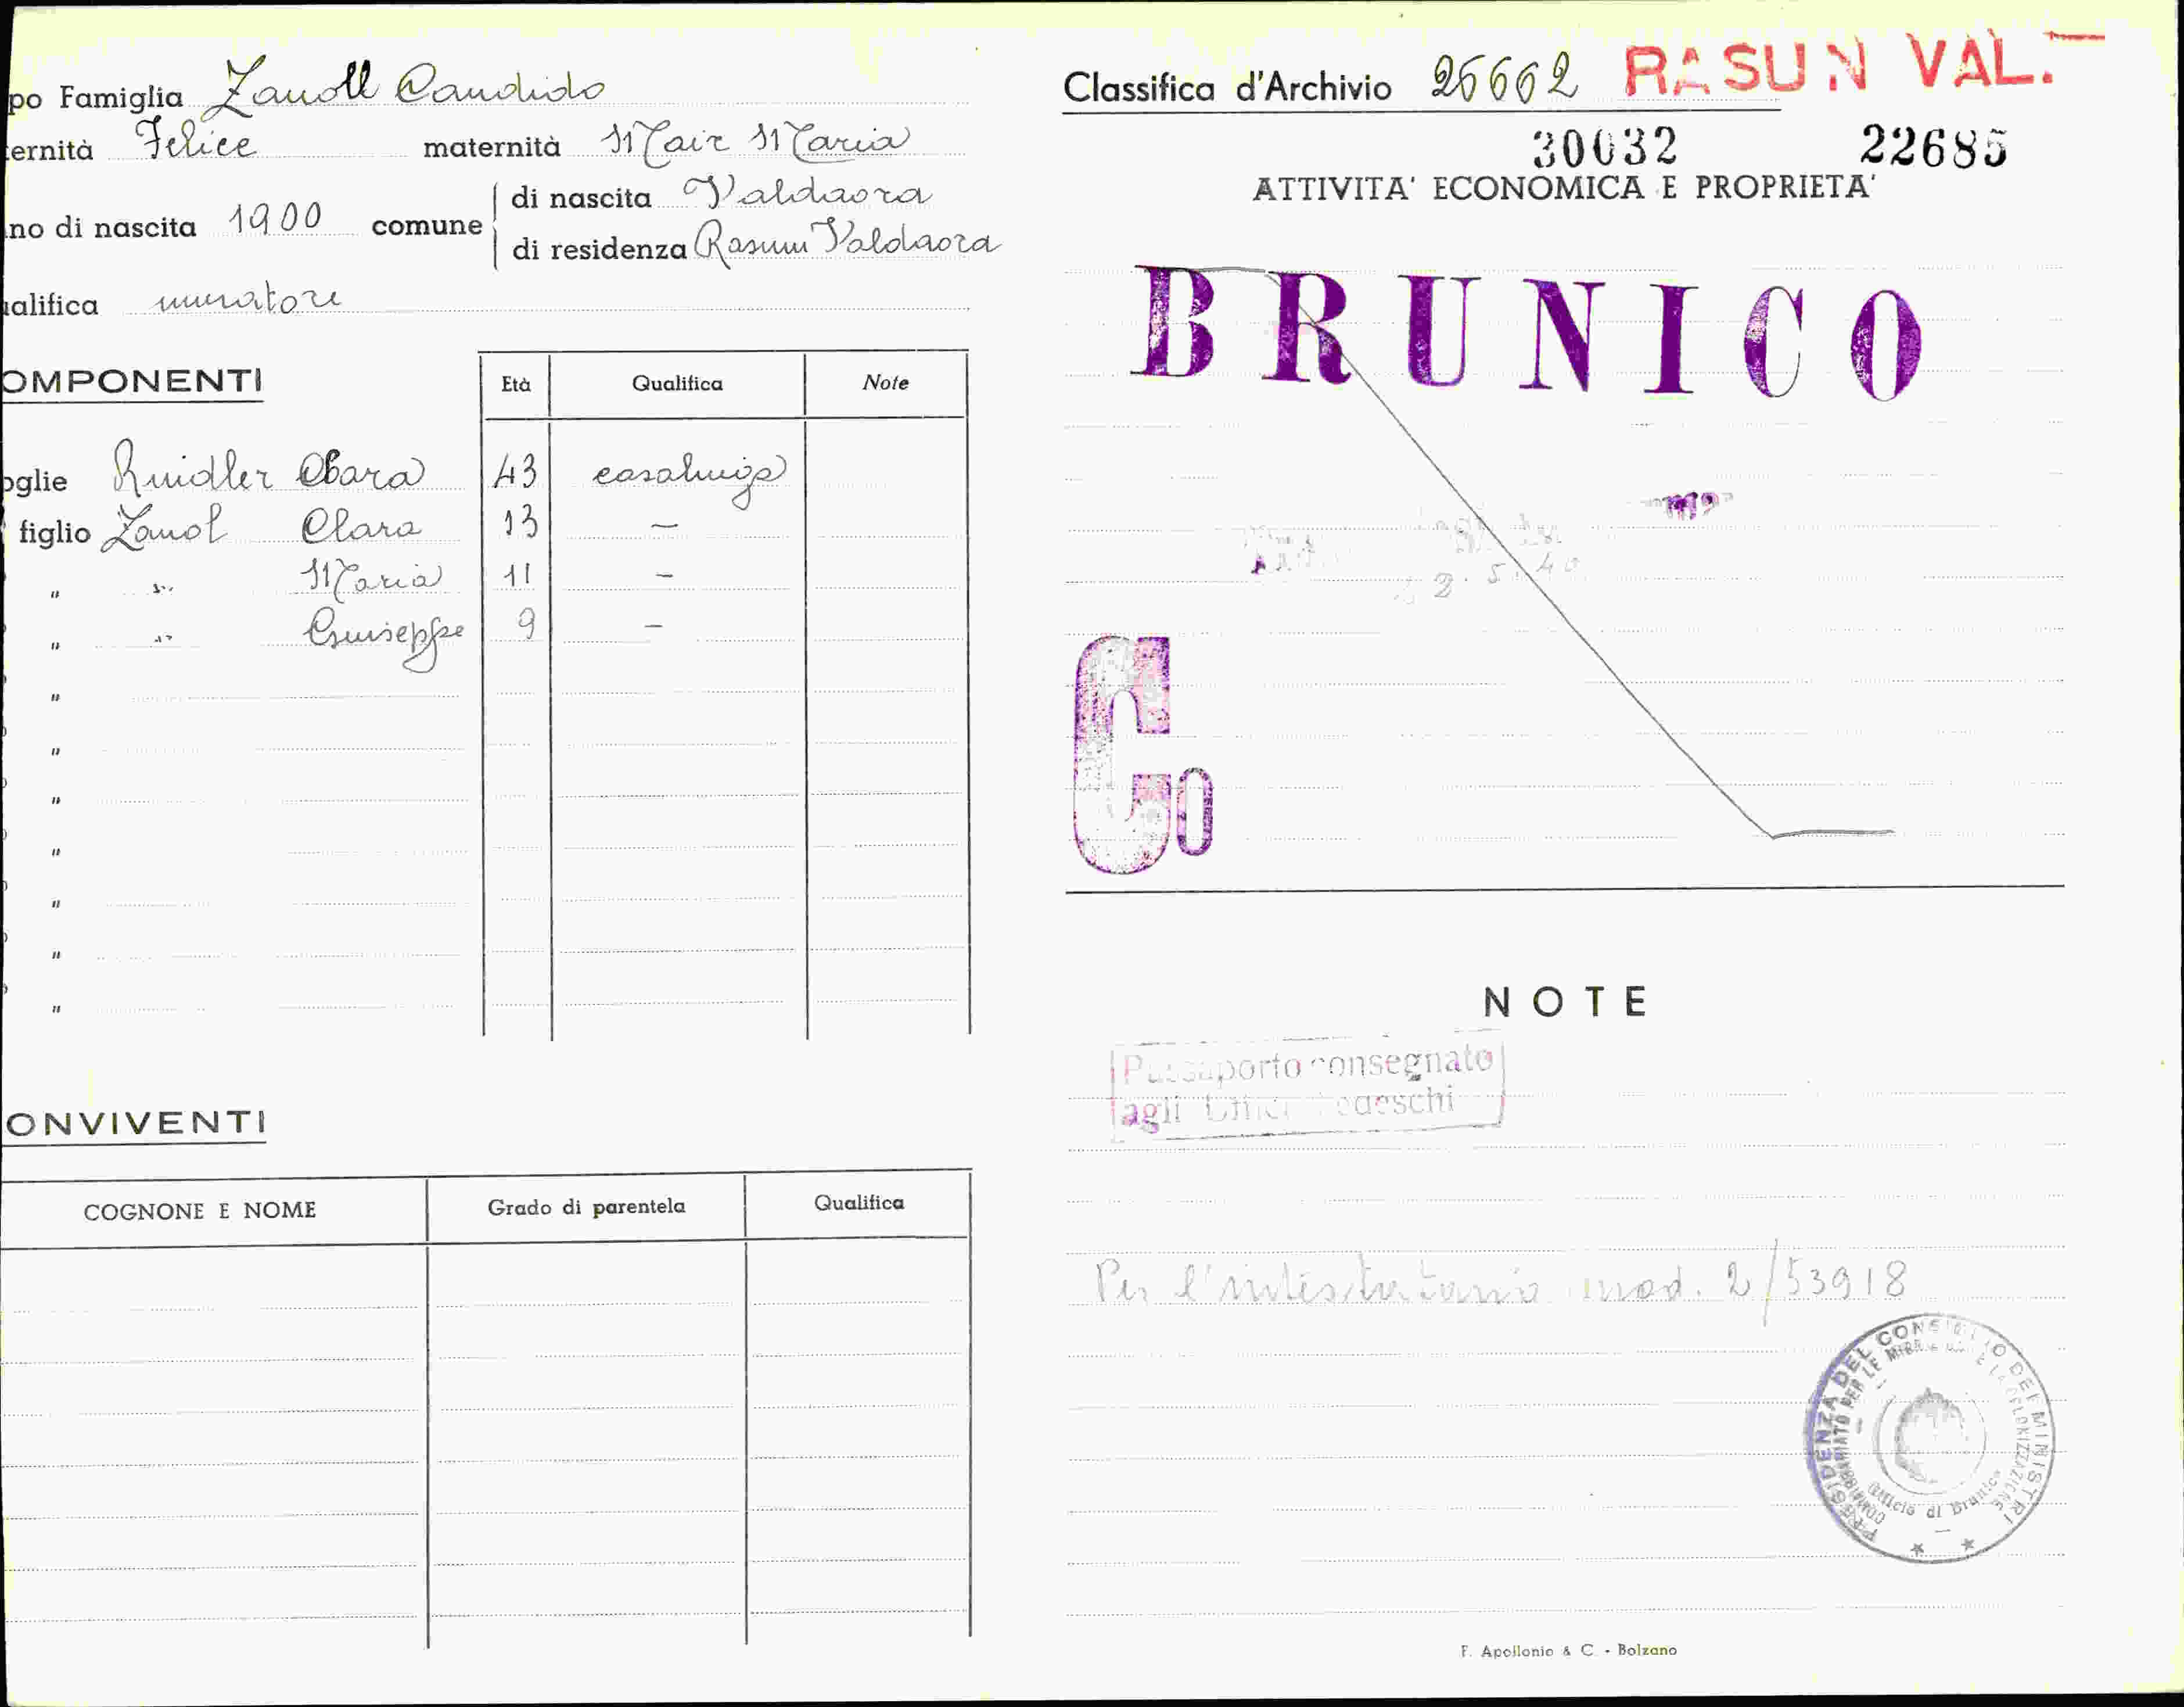 po Famiglia Zanoll Candido
ernità Felice maternità Mair Maria
no di nascita 1900 comune di nascita Valdaora
di residenza Rasun Valdaora
alifica muratore
OMPONENTI Età Qualifica Note
oglie Clara 43 casalinga
figlio Zanol Clara 13 —
" " Maria 11 —
" " Giuseppe 9 —
"
"
"
"
"
"
"
ONVIVENTI
COGNONE E NOME Grado di parentela Qualifica
Classifica d'Archivio 26662 RASUN VAL.
30032 22685
ATTIVITA' ECONOMICA E PROPRIETA'
BRUNICO
2.5.40
Co
NOTE
Passaporto consegnato
agli Uffici Tedeschi
Per l'intestatario mod. 2/53918
PRESIDENZA DEL CONSIGLIO DEI MINISTRI
COMMISSARIATO PER LE MIGRAZIONI E LA COLONIZZAZIONE
Ufficio di Brunico
F. Apollonio & C. - Bolzano